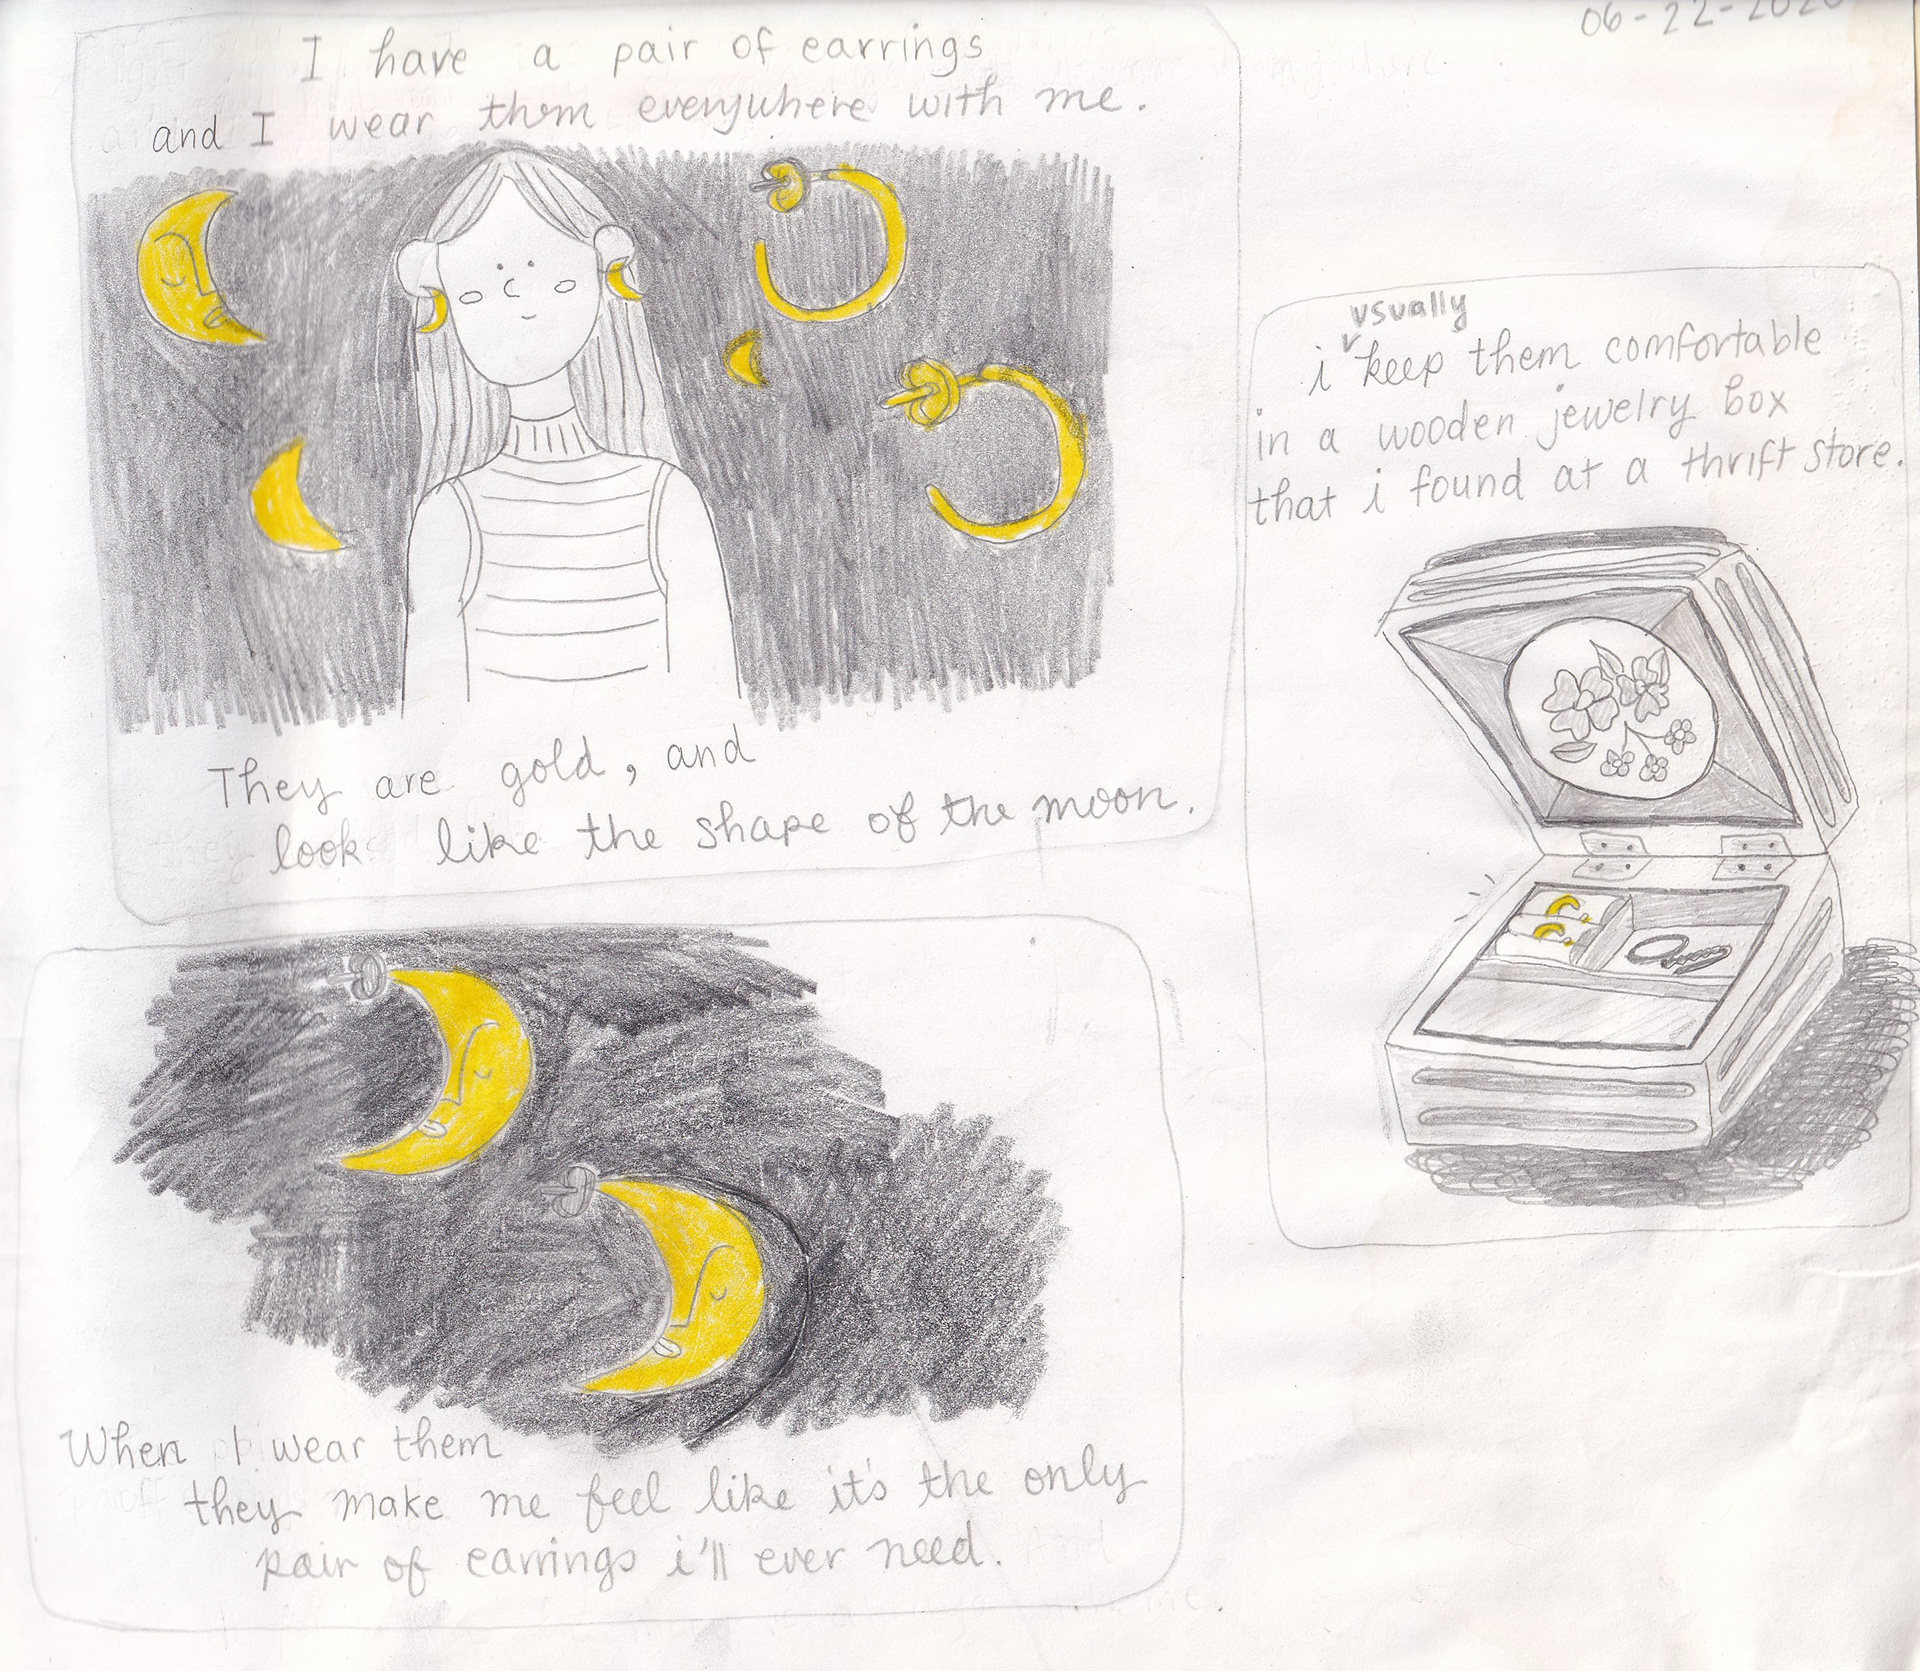 06-22-2020
I have a pair of earrings
and I wear them everywhere with me.
They are gold, and
look like the shape of the moon.
usually
i keep them comfortable
in a wooden jewelry box
that i found at a thrift store.
When I wear them
they make me feel like it's the only
pair of earrings i'll ever need.